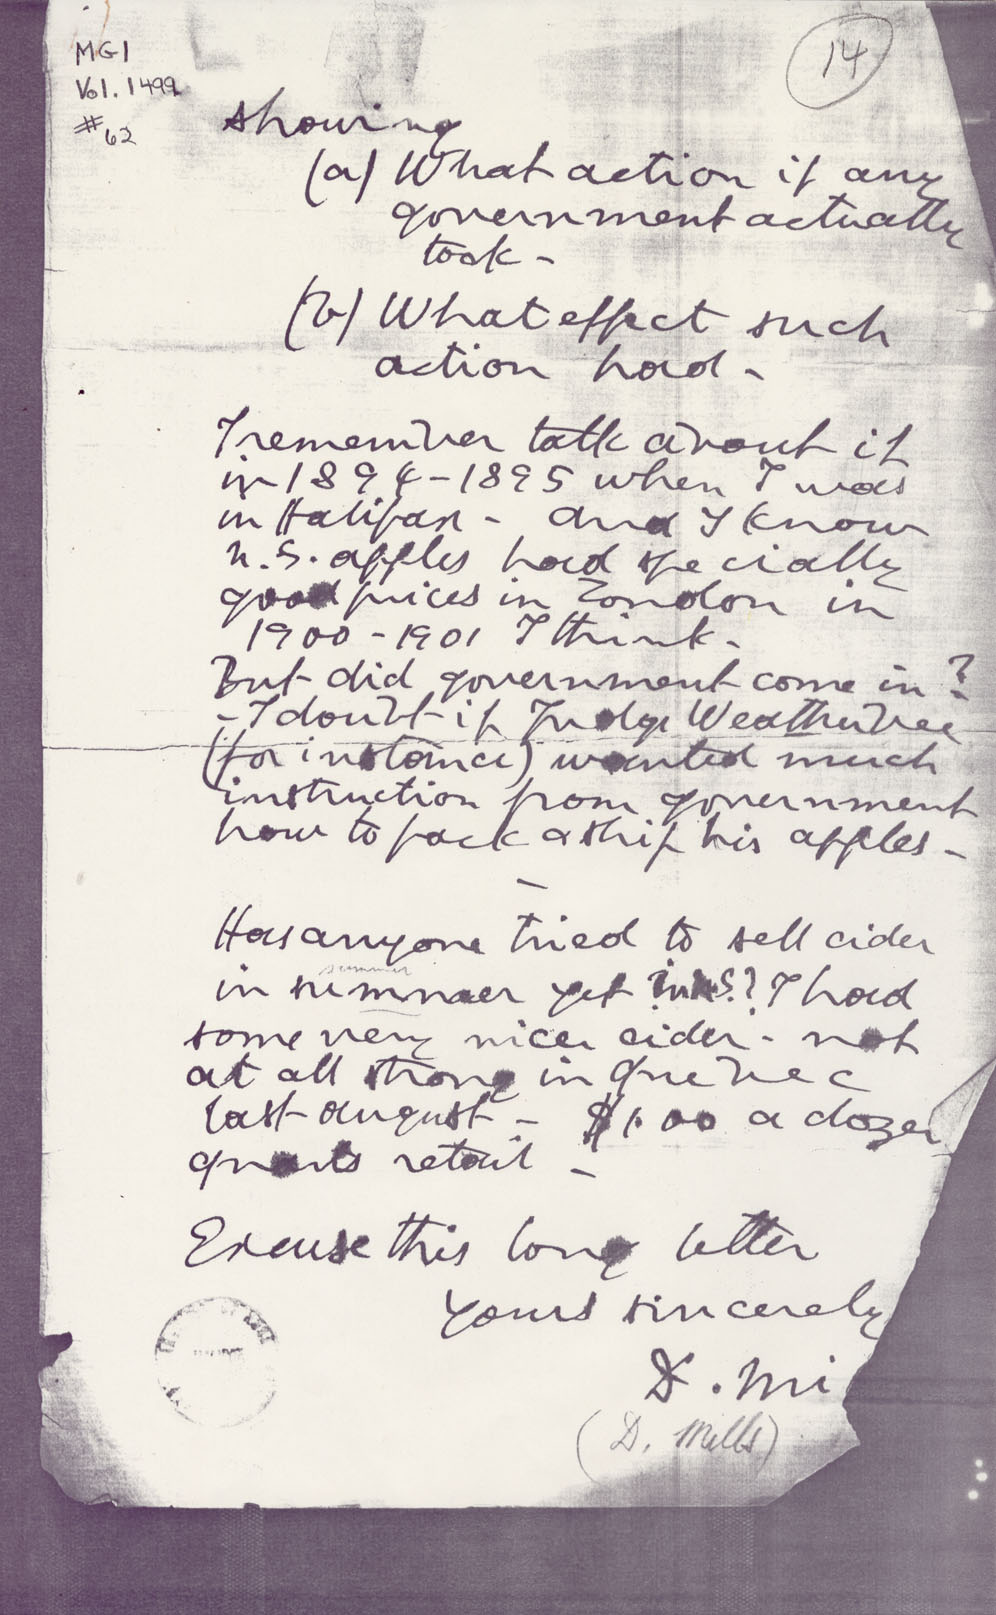 MG1
Vol. 1499
#62
14
showing
(a) What action if any
government actually
took -
(b) What effect such
action had -
I remember talk about it
in 1894-1895 when I was
in Halifax - and I know
N.S. apples had specially
good prices in London in
1900-1901 I think -
But did government come in?
- I doubt if Judge Weatherbee
(for instance) wanted much
instruction from government
how to pack & ship his apples -
-
Has anyone tried to sell cider
summer
in summer yet in N.S.? I had
some very nice cider - not
at all strong in Quebec
last august - $1.00 a dozen
quarts retail -
Excuse this long letter
yours sincerely
D. Mi
(D. Mills)